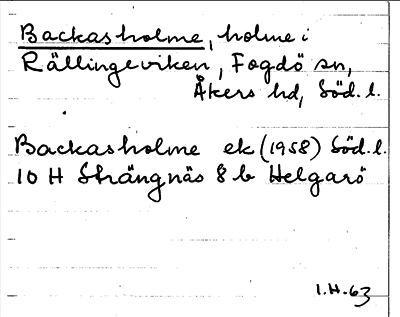 Backasholme, holme i
Rällingeviken, Fogdö sn,
Åkers hd, Söd. l.
Backasholme ek (1958) Söd. l.
10 H Strängnäs 8 b Helgarö
I.H. 63